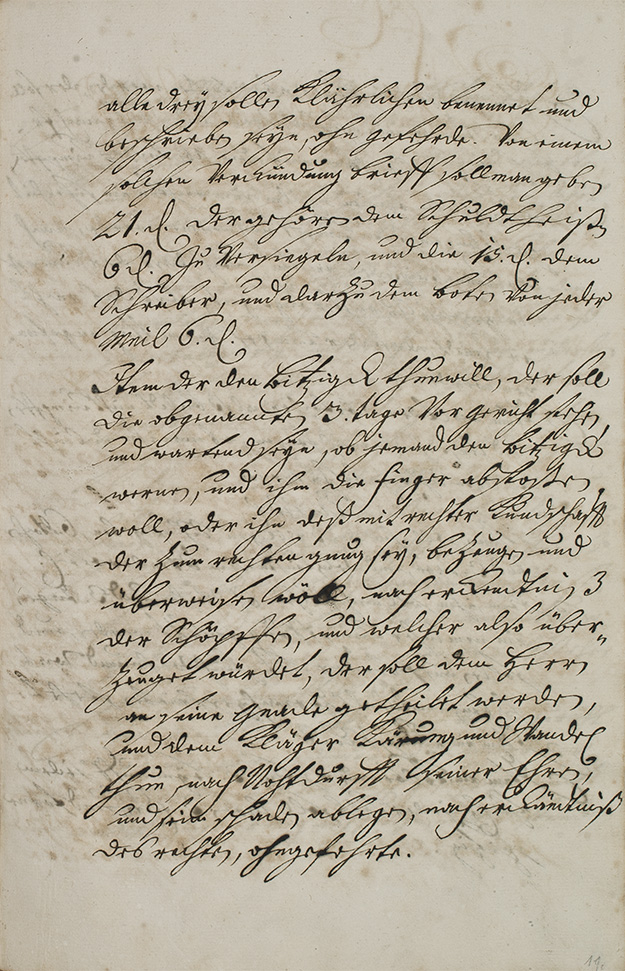 alle drey sollen Klährlichen benennet und
beschrieben seyn, ohn gefehrde. Von einem
solchen Verkündung brieff soll man geben
21. d. der gehören dem Schultheißen
6 d. Zu Versiegeln, und die 15. d. dem
Schreiber, und darzu dem boten Von jeder
Meil 6. d.
Item der den bitzig thun will, der soll
die obgenannten 3. tage Vor Gericht stehen
und wartend seyn, ob jemand den bitzig
wernen, und ihm die finger abstosen
woll, oder ihn deß mit rechter Kundschafft
der Zum rechten gnug sey, bezeugen und
überweisen wöll, nach erkendtnis 3
der Schöpffen, und welcher also über-
Zeuget würdet, der soll dem Herrn
an seine Gnade getheilet werden,
und dem Kläger und Wandel
thun, nach Nohtdurfft seiner Ehren,
und sein schaden ablegen, nach erkändtniß
des rechten, ohngefehrte.
11.